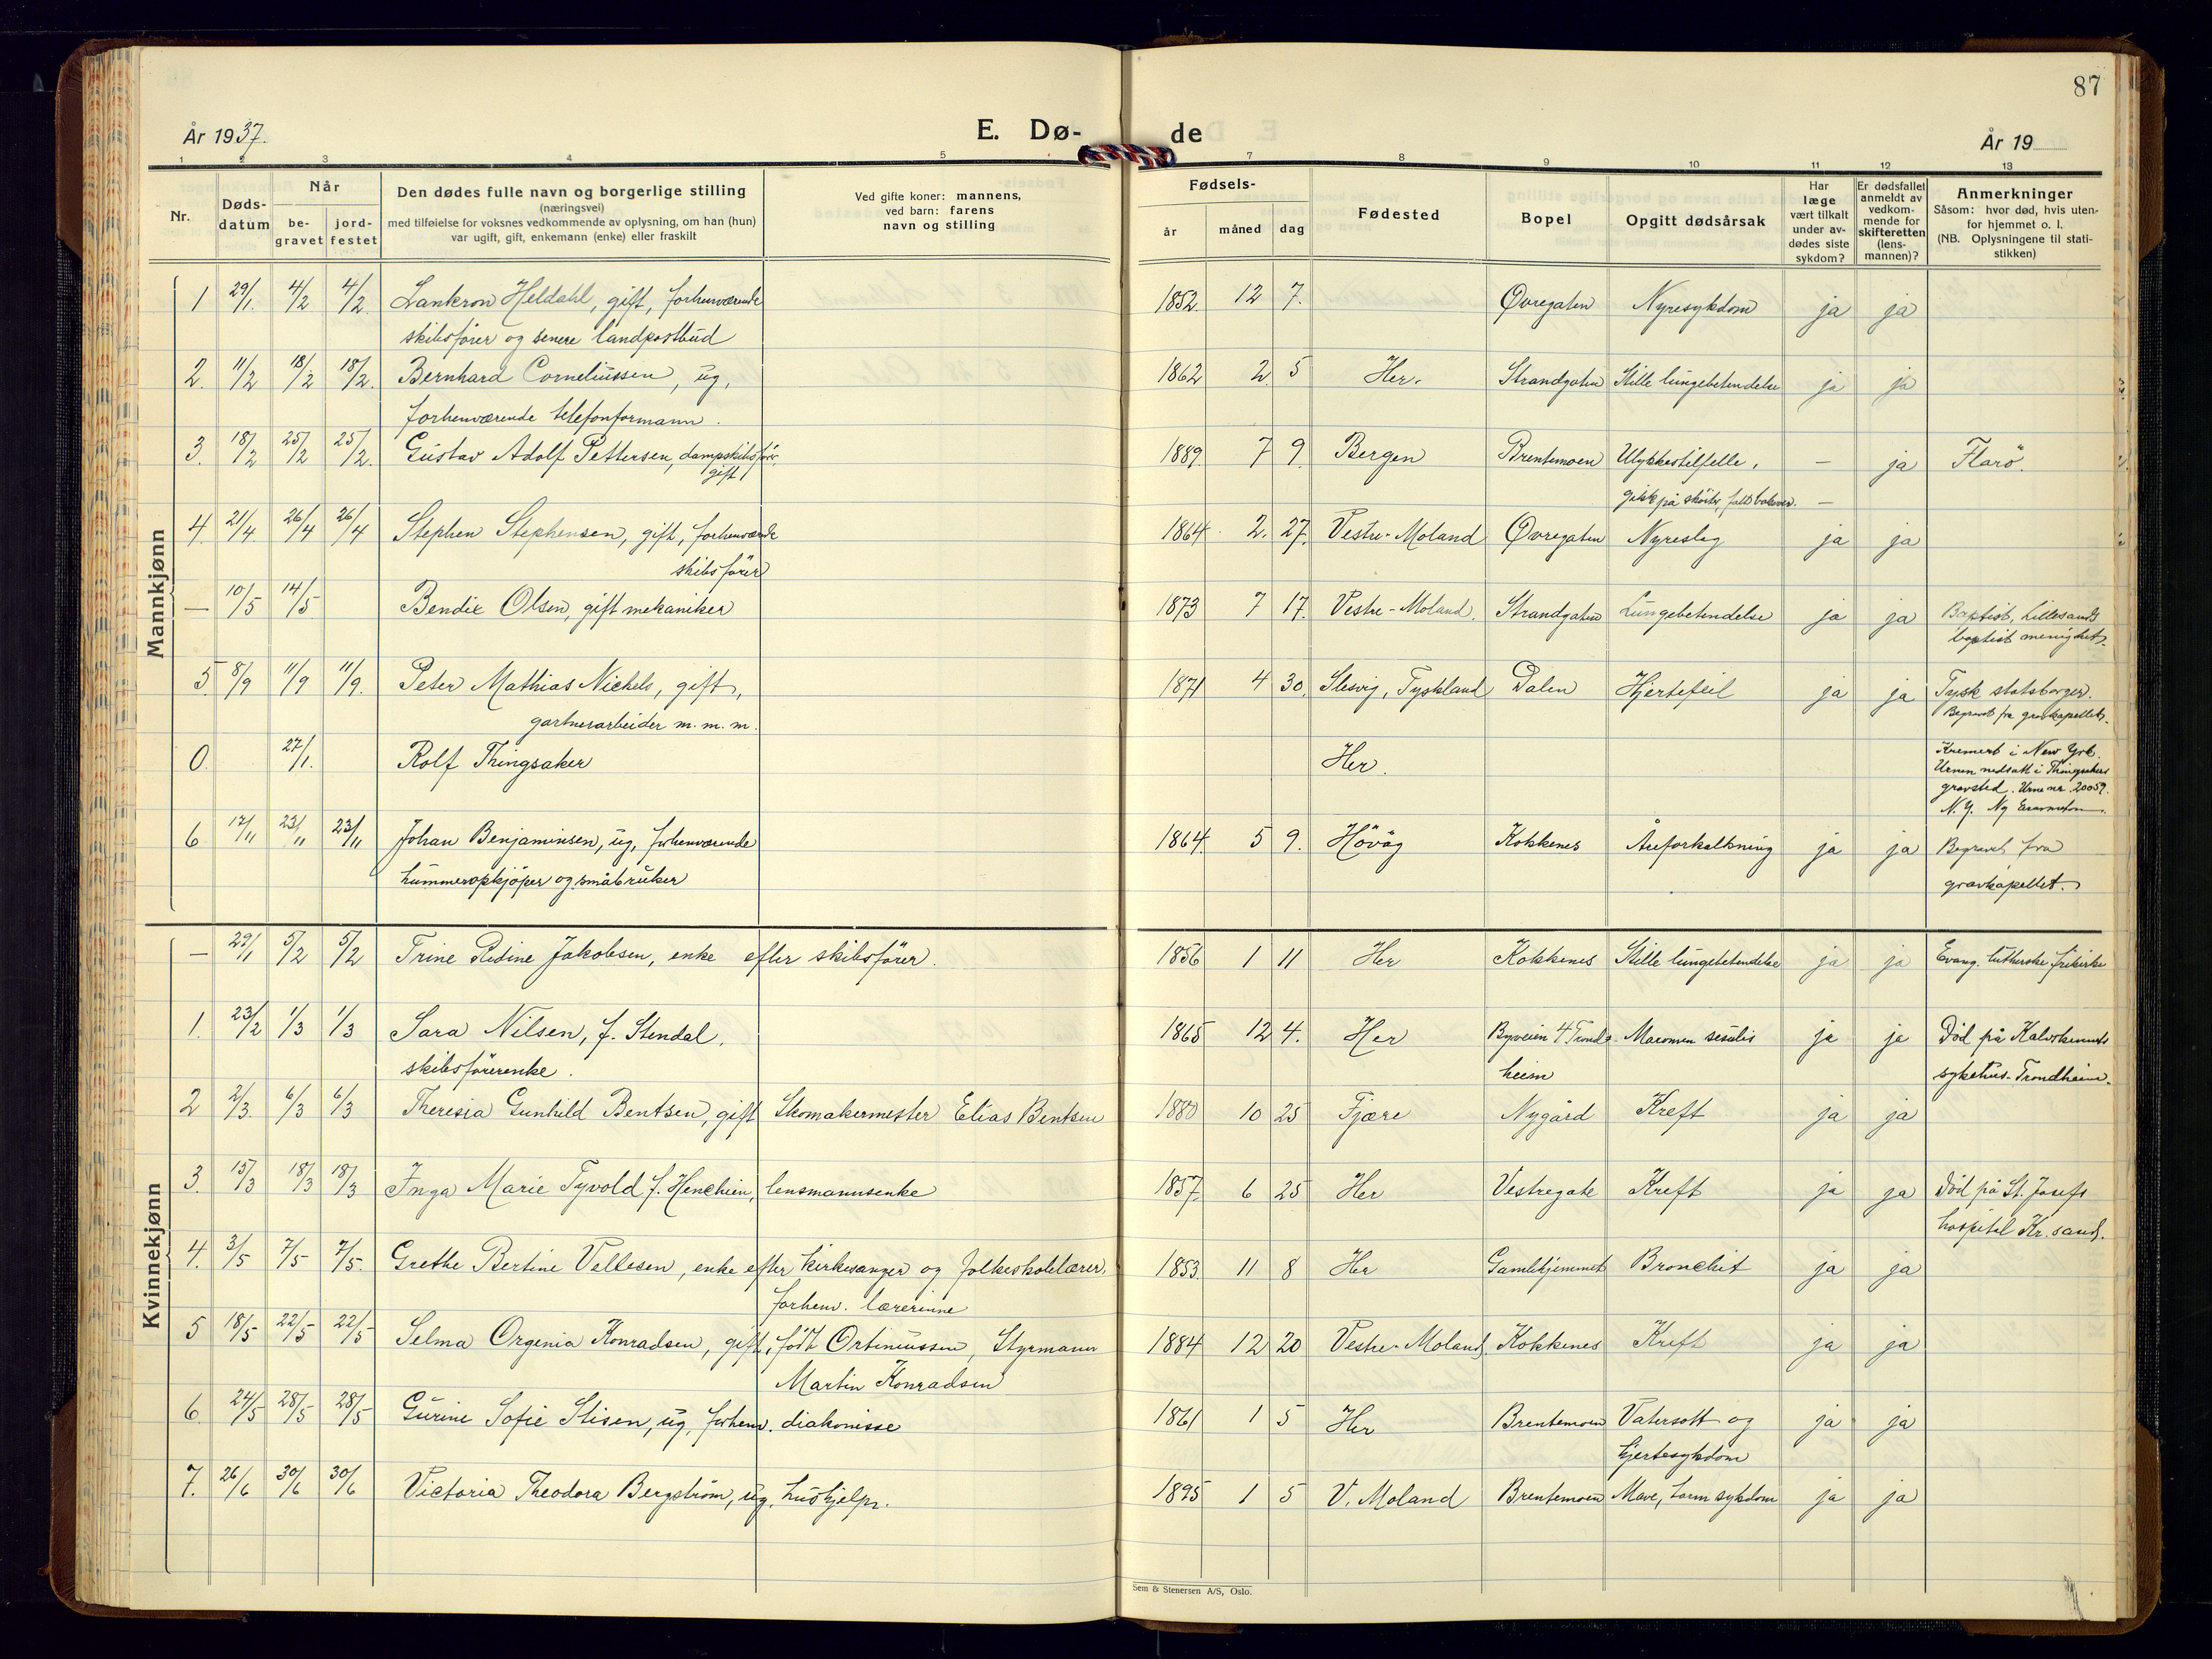 87
År 1937.
E. Dø-
de
År 19
1 2 3 4 5
7 8 9 10 11 12 13
Nr.
Døds-
datum
Når
be-
gravet
jord-
festet
Den dødes fulle navn og borgerlige stilling
(næringsvei)
med tilføielse for voksnes vedkommende av oplysning, om han (hun)
var ugift, gift, enkemann (enke) eller fraskilt
Ved gifte koner: mannens,
ved barn: farens
navn og stilling
Fødsels-
år
måned
dag
Fødested
Bopel
Opgitt dødsårsak
Har
læge
vært tilkalt
under av-
dødes siste
sykdom?
Er dødsfallet
anmeldt av
vedkom-
mende for
skifteretten
(lens-
mannen)?
Anmerkninger
Såsom: hvor død, hvis uten-
for hjemmet o. l.
(NB. Oplysningene til stati-
stikken)
Mannkjønn
1 29/1. 4/2 4/2. Lankron Heldahl, gift, forhenværende 1852. 12 7. Øvregaten Nyresykdom ja ja
skibsfører og senere landpostbud
2. 11/2 18/2 18/2. Bernhard Corneliussen, ug, 1862 2. 5 Her. Strandgaten Stille lungebetendelse ja ja
forhenværende telefonformann.
3. 18/2 25/2 25/2. Gustav Adolf Pettersen, dampskibsfør. 1889. 7 9. Bergen Brentemoen Ulykkestilfelle. — ja Flarö.
gift
gikk på sköiter, —
4. 21/4. 26/4 26/4 Stephen Stephensen, gift, forhenværende 1864 2. 27. Vestre-Moland Øvregaten Nyreslag ja ja
skibsfører
— 10/5 14/5 Bendix Olsen, gift mekaniker 1873 7 17. Vestre-Moland. Strandgaten Lungebetendelse ja ja Baptist, Lillesands
baptist menighet.
5. 8/9 11/9 11/9. Peter Mathias Nickels, gift, 1871 4 30. Slesvig, Tyskland Dalen Hjertefeil ja ja Tysk statsborger.
gartnerarbeider m. m. m. Begravet fra gravkapellet.
0. 27/1. Rolf Thingsaker Her. Kremert i New York.
Urnen nedsatt i Thingsakers
gravsted. Urne nr. 20059.
N. Y.
6 17/11 23/11 23/11 Johan Benjaminsen, ug, forhenværende 1864. 5 9. Hövåg Kokkenes Åreforkalkning ja ja Begravet fra
hummeropkjøper og småbruker gravkapellet.
Kvinnekjønn
— 29/1 5/2 5/2 Trine Jakobsen, enke efter skibsfører. 1856 1 11 Her Kokkenes Stille lungebetendelse ja ja Evang. lutherske frikirke
1. 23/2 1/3 1/3 Sara Nilsen, f. Stendal. 1865 12 4. Her Byveien 4 Trond- ja ja Död på Kalvskinnets
skibsførerenke. heim sykehus. Trondheim.
2 2/3. 6/3 6/3 Theresia Gunhild Bentsen, gift Skomakermester Elias Bentsen 1880 10 25 Fjære Nygård Kreft ja ja
3. 15/3 18/3 18/3 Inga Marie Tyvold f. Henchien, lensmannsenke 1857. 6 25 Her Vestregate Kreft ja ja Död på St. Josefs
hospital Kr. sand.
4. 3/5 7/5 7/5. Grethe Bertine Vellesen, enke efter kirkesanger og folkeskolelærer. 1853. 11 8 Her Gamlehjemmet Bronchit ja ja
forhenv. lærerinne
5 18/5 22/5 22/5 Selma Orginia Konradsen, gift, født Ortiniussen, Styrmann 1884 12 20 Vestre-Moland. Kokkenes Kreft ja ja
Martin Konradsen
6. 24/5 28/5 28/5 Gurine Sofie Stisen, ug, forhenv. diakonisse 1861 1 5 Her Brentemoen Vatersott og ja ja
hjertesykdom
7. 26/6 30/6 30/6 Victoria Theodora Bergström, ug. hushjelp. 1895 1 5 V. Moland Brentemoen Mave, tarm sykdom ja ja
Sem & Stenersen A/S, Oslo.